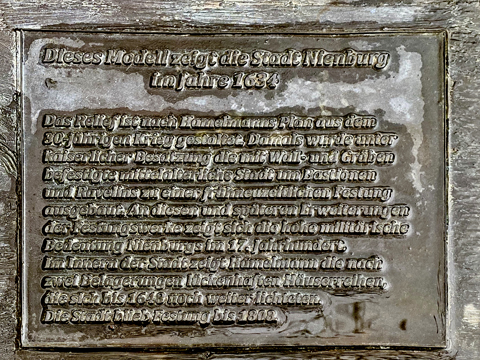 Dieses Modell zeigt die Stadt Nienburg
im Jahre 1634
Das Relief ist nach Hamelmanns Plan aus dem
30-jährigen Krieg gestaltet. Damals wurde unter
kaiserlicher Besetzung die mit Wall- und Gräben
befestigte mittelalterliche Stadt um Bastionen
und Ravelins zu einer frühneuzeitlichen Festung
ausgebaut. An diesen und späteren Erweiterungen
der Festungswerke zeigt sich die hohe militärische
Bedeutung Nienburgs im 17. Jahrhundert.
Im Innern der Stadt zeigt Hamelmann die nach
zwei Belagerungen lückenhaften Häuserreihen,
die sich bis 1648 noch weiter lichteten.
Die Stadt blieb Festung bis 1808.